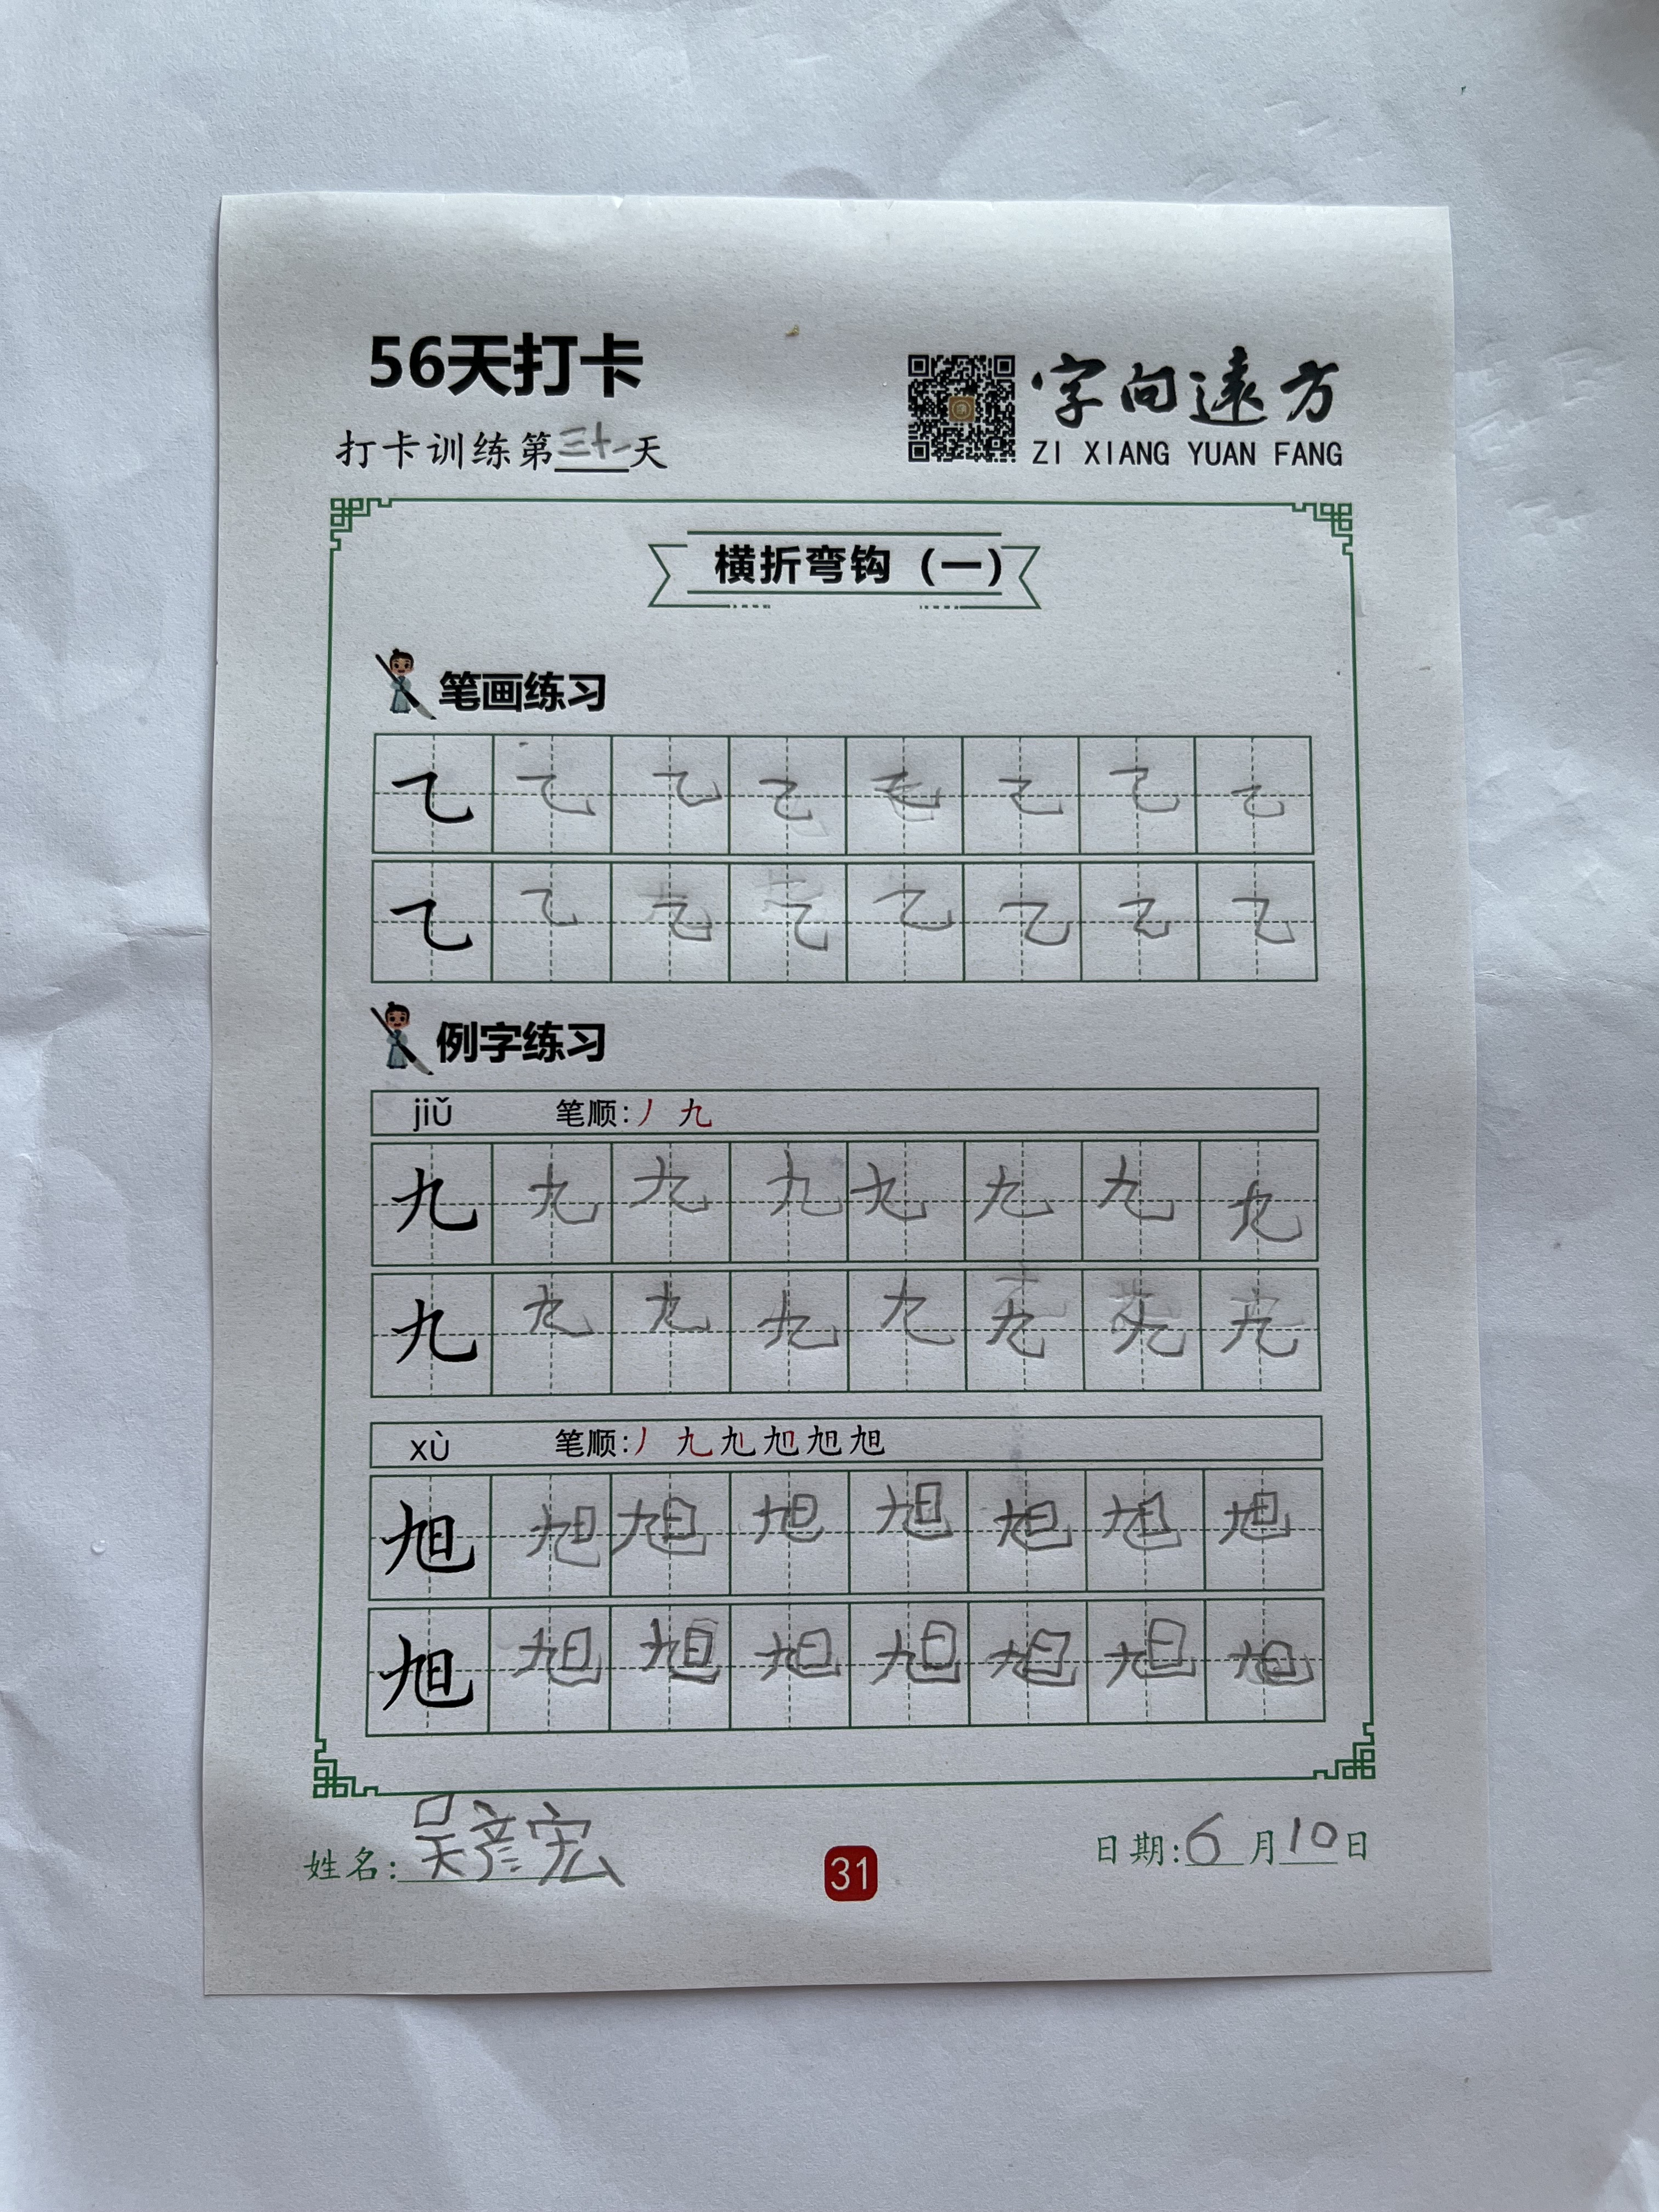 56天打卡
打卡训练第三十一天
字向遠方
ZI XIANG YUAN FANG
横折弯钩（一）
笔画练习
乙 乙 乙 乙 乙 乙 乙 乙
乙 乙 乙 乙 乙 乙 乙 乙
例字练习
jiǔ 笔顺:丿 九
九 九 九 九 九 九 九 九
九 九 九 九 九 九 九 九
xù 笔顺:丿 九 旭 旭 旭 旭
旭 旭 旭 旭 旭 旭 旭 旭
旭 旭 旭 旭 旭 旭 旭 旭
姓名:吴彦宏
31
日期:6月10日